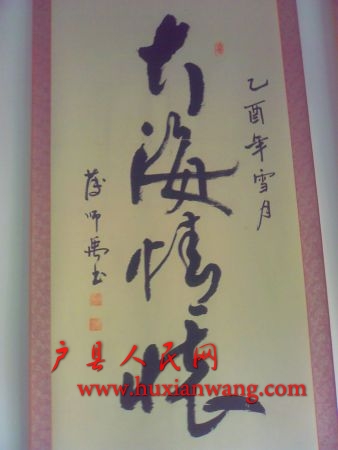 乙酉年雪月
大海情懷
师禹书
户县人民网
www.huxianwang.com